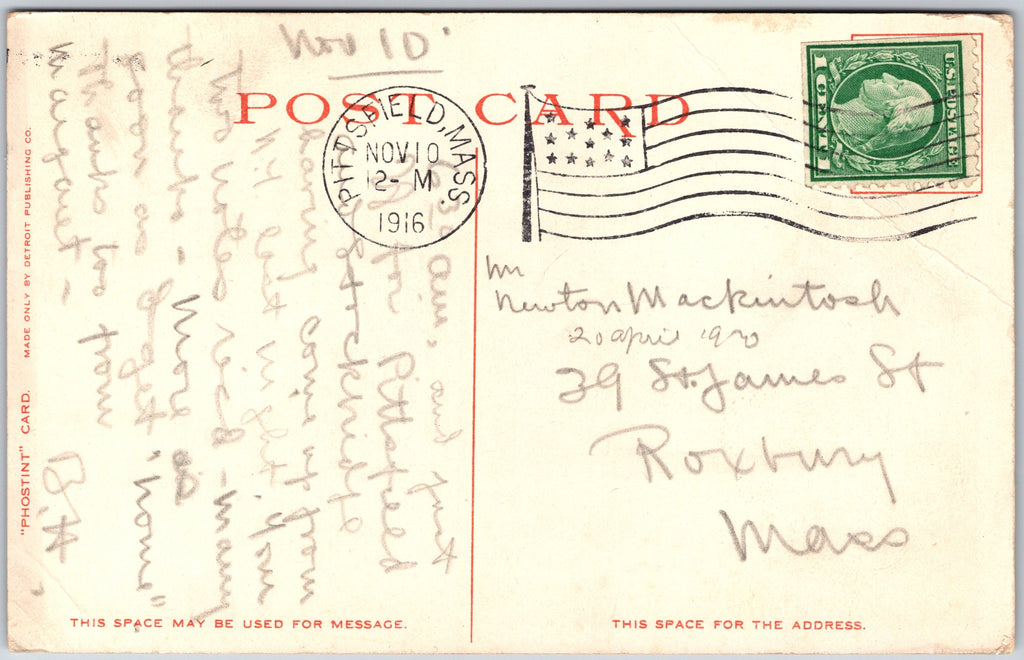 Nov 10
POST CARD
PITTSFIELD, MASS.
NOV 10
12- M
1916
U.S. POSTAGE
1 CENT 1
Mr
Newton Mackintosh
20 April 1920
39 St. James St
Roxbury
Mass
and just
for Pittsfield
Stockbridge
having come up from
N.Y. last night. Your
two notes rec'd - many
thanks - more as
soon as I get "home"
Thanks too from
Margaret -
B.H.
"PHOSTINT" CARD. MADE ONLY BY DETROIT PUBLISHING CO.
THIS SPACE MAY BE USED FOR MESSAGE.
THIS SPACE FOR THE ADDRESS.